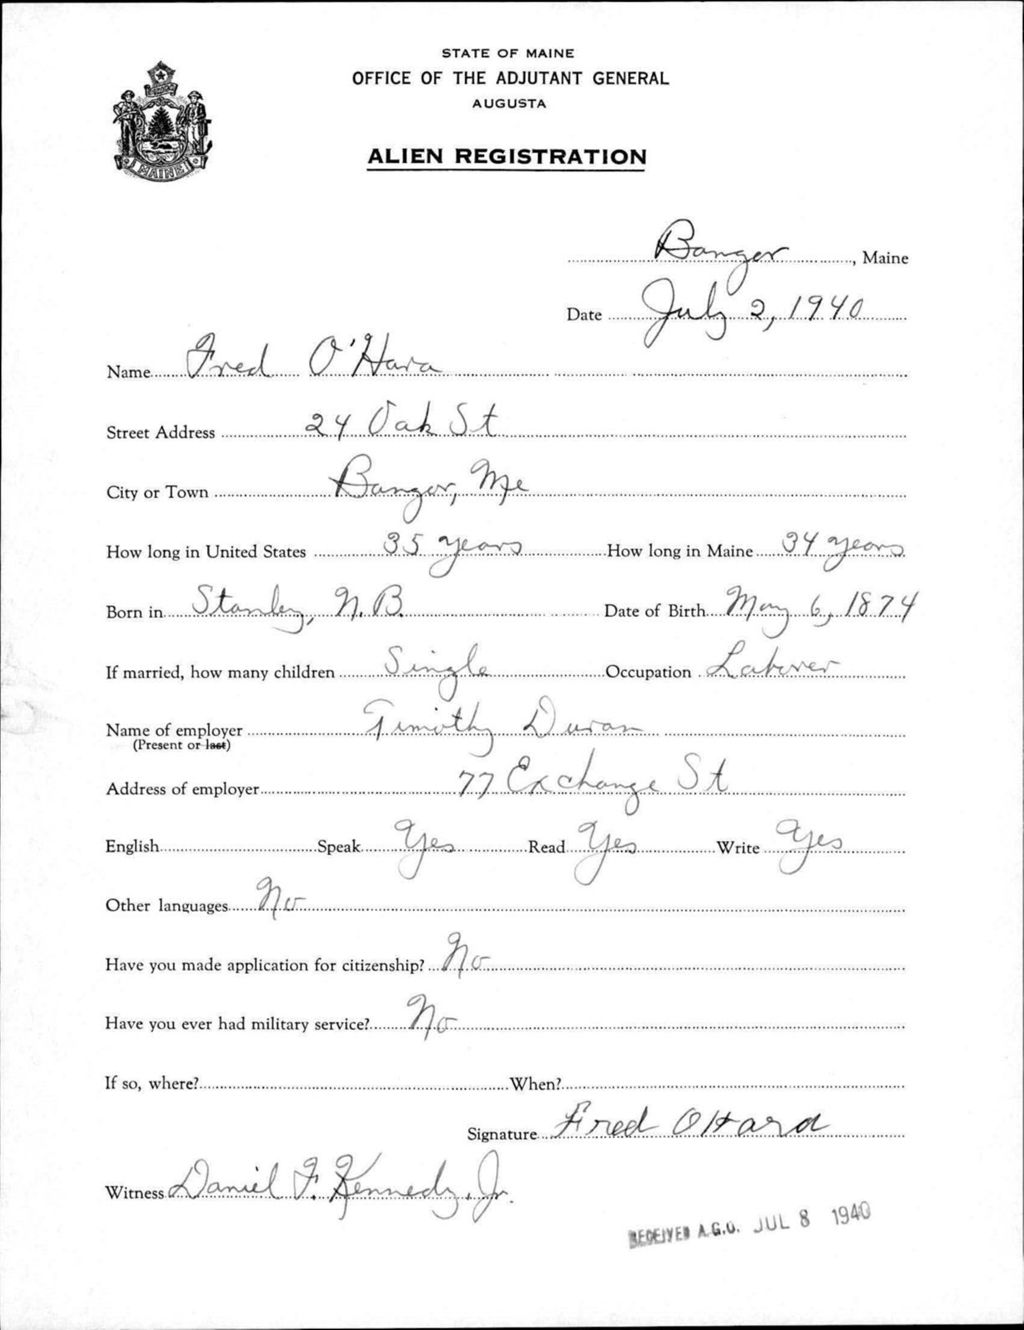 STATE OF MAINE
OFFICE OF THE ADJUTANT GENERAL
AUGUSTA
ALIEN REGISTRATION
MAINE
Bangor, Maine
Date July 2, 1940
Name Fred O'Hara
Street Address 24 Oak St
City or Town Bangor, Me
How long in United States 35 years How long in Maine 34 years
Born in Stanley, N.B. Date of Birth May 6, 1874
If married, how many children Single Occupation Laborer
Name of employer Timothy Duran
(Present or last)
Address of employer 77 Exchange St
English Speak Yes Read Yes Write Yes
Other languages No
Have you made application for citizenship? No
Have you ever had military service? No
If so, where? When?
Signature Fred O Hara
Witness Daniel F. Kennedy, Jr.
RECEIVED A.G.O. JUL 8 1940